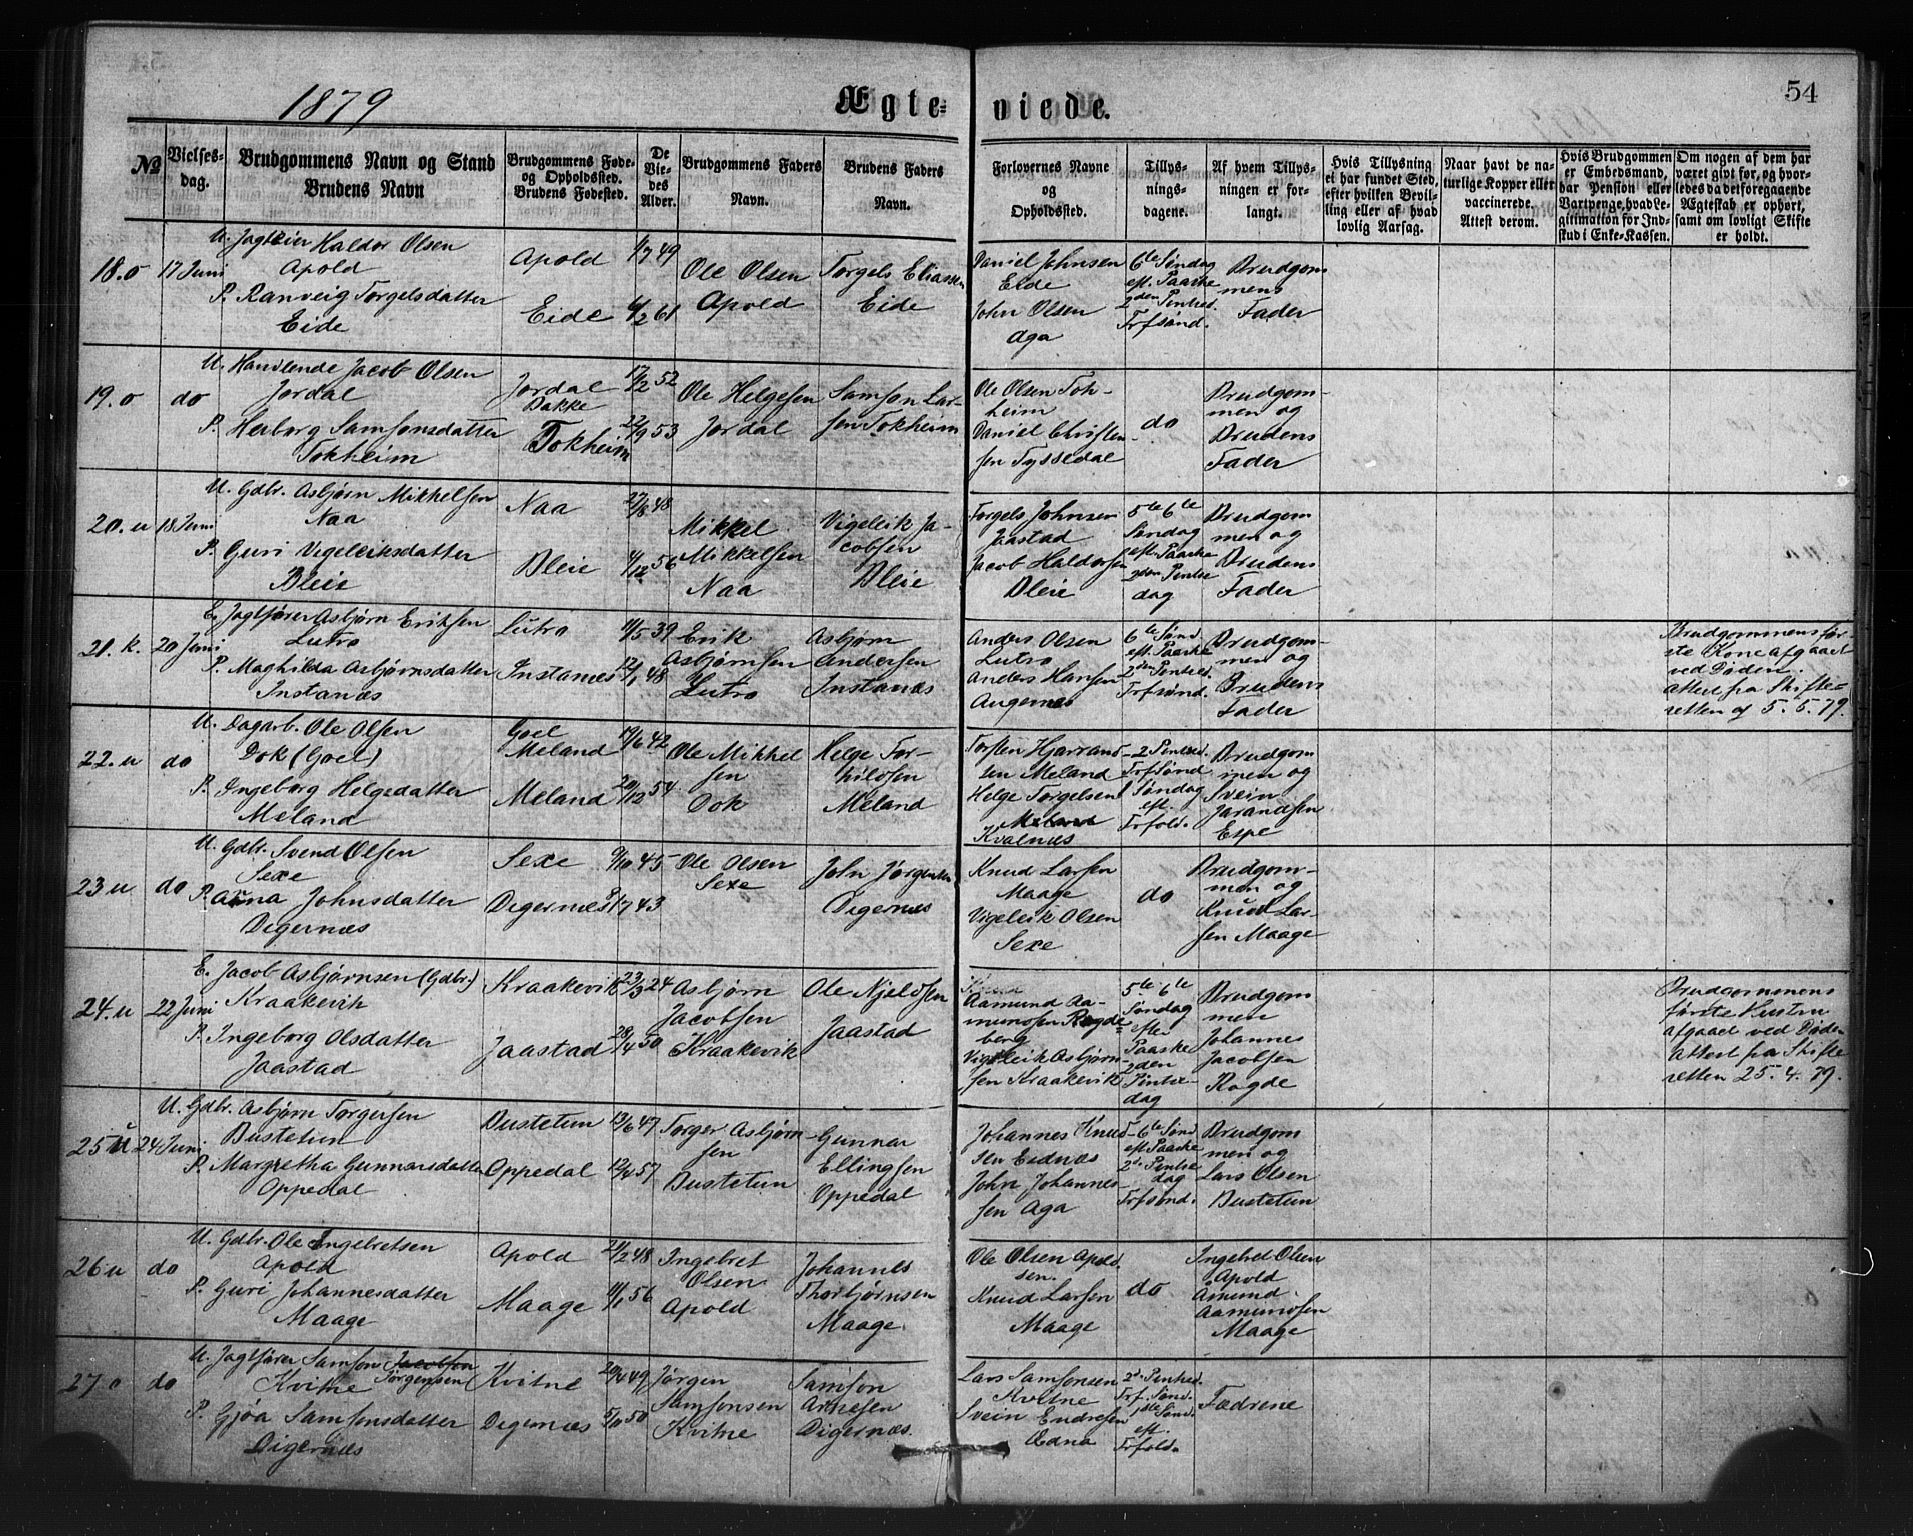 1879
Ægte-
viede.
54
No
Vielses-
dag.
Brudgommens Navn og Stand
Brudens Navn
Brudgommens Føde-
og Opholdssted.
Brudens Fødested.
De
Vie-
des
Alder.
Brudgommens Faders
Navn.
Brudens Faders
Navn.
Forlovernes Navne
og
Opholdssted.
Tillys-
nings-
dagene.
Af hvem Tillys-
ningen er for-
langt.
Hvis Tillysning
ei har fundet Sted,
efter hvilken Bevil-
ling eller af hvad
lovlig Aarsag.
Naar havt de na-
turlige Kopper eller
vaccinerede.
Attest derom.
Hvis Brudgommen
er Embedsmand,
har Pension eller
Vartpenge, hvad Le-
gitimation for Ind-
skud i Enke-Kassen.
Om nogen af dem har
været givt før, og hvor-
ledes da det foregaaende
Ægteskab er ophørt,
samt om lovligt Skifte
er holdt.
18.o
17 Juni
U. Jagteier Haldor Olsen
Apold
P. Ranveig Torgelsdatter
Eide
Apold
Eide
1/7 49
4/2 61
Ole Olsen
Apold
Torgels Eliassen
Eide
Daniel Johnsen
Eide
John Olsen
Aga
6te Søndag
eft. Paaske
2den Pintsed.
Trfsønd.
Brudgom
mens
Fader
19.o
do
U. Handlende Jacob Olsen
Jordal
P. Herborg Samsonsdatter
Tokheim
Jordal
Bakke
Tokheim
17/2 52
22/9 53
Ole Helgesen
Jordal
Samson Lar-
sen Tokheim
Ole Olsen Tok-
heim
Daniel Christen-
sen Tyssedal
do
Brudgom-
men og
Brudens
Fader
20.u
18 Juni
U. Gdbr. Asbjørn Mikkelsen
Naa
P. Guri Vigeleiksdatter
Bleie
Naa
Bleie
27/8 48
4/12 56
Mikkel
Mikkelsen
Naa
Vigeleik Ja-
cobsen
Bleie
Torgels Johnsen
Jaastad
Jacob Haldorsen
Bleie
5te 6te
Søndag
eft. Paaske
2den Pintse
dag
Brudgom
men og
Brudens
Fader
21.k.
20 Juni
E. Jagtfører Asbjørn Eriksen
Lutro
P. Maghilda Asbjørnsdatter
Instanæs
Lutro
Instanæs
11/5 39
12/1 48
Erik
Asbjørnsen
Lutro
Asbjørn
Andersen
Instanæs
Anders Olsen
Lutro
Anders Hansen
Augernes
6te Sønd
eft. Paaske
2den Pintsed.
Trfsønd.
Brudgom-
men og
Brudens
Fader
Brudgommens før-
ste Kone afgaaet
ved Døden.
attest fra Skifte-
retten af 5.5.79.
22.u
do
U. Dagarb. Ole Olsen
Dok (Goel)
P. Ingeborg Helgedatter
Meland
Goel
Meland
Meland
19/6 42
20/12 54
Ole Mikkel
sen
Dok
Helge Tor-
kildsen
Meland
Torsten Hjarrand-
sen Meland
Helge Torgelsen
Meland
Kvalnæs
2 Pintsed.
Trfsønd
1 Søndag
eft.
Trfold.
Brudgom
men og
Svein
Jarandsen
Espe
23 u
do
U. Gdbr. Svend Olsen
Sexe
P. Anna Johnsdatter
Digernæs
Sexe
Digernæs
9/10 45
9/7 43
Ole Olsen
Sexe
John Jørgensen
Digernæs
Knud Larsen
Maage
Vigeleik Olsen
Sexe
do
Brudgom-
men og
Knud Lar-
sen Maage
24.u
22 Juni
E. Jacob Asbjørnsen (Gdbr.)
Kraakevik
P. Ingeborg Olsdatter
Jaastad
Kraakevik
Jaastad
23/3 24
28/4 50
Asbjørn
Jacobsen
Kraakevik
Ole Njeldsen
Jaastad
Aamund Aa-
mundsen Rogde-
berg
Vigeleik Asbjørn-
sen Kraakevik
5te 6te
Søndag
efter
Paaske
2den
Pintse-
dag
Brudgom
men
Johannes
Jacobsen
Rogde
Brudgommens
første Hustru
afgaaet ved Døden
attest fra Skifte
retten 25.4.79.
25 u
24 Juni
U. Gdbr. Asbjørn Torgersen
Bustetun
P. Margretha Gunnarsdatter
Oppedal
Bustetun
Oppedal
13/6 47
12/4 57
Torger Asbjørn-
sen
Bustetun
Gunnar
Ellingsen
Oppedal
Johannes Knud-
sen Eidnæs
John Johannes-
sen Aga
6te Sønd
eft. Paaske
2d. Pintse
dag
Trfsønd.
Brudgom
men og
Lars Olsen
Bustetun
26 u
do
U. Gdbr. Ole Engebretsen
Apold
P. Guri Johannesdatter
Maage
Apold
Maage
21/2 48
11/1 56
Ingebret
Olsen
Apold
Johannes
Thorbjørnsen
Maage
Ole Olsen Apold
sen.
Knud Larsen
Maage
do
Ingebret Olsen
Apold
Amund
Aamundsen
Maage
27 o
do
U. Jagtfører Samson Jacobsen
Jørgensen
Kvitne
P. Gjøa Samsonsdatter
Digernæs
Kvitne
Digernæs
20/4 49
5/11 50
Jørgen
Samsonsen
Kvitne
Samson
Arnesen
Digernæs.
Lars Samsonsen
Kvitne
Svein Endresen
Ædna
2d. Pintsed.
Trf. Sønd.
1ste Sønd.
eft.
Trfold.
Fædrene